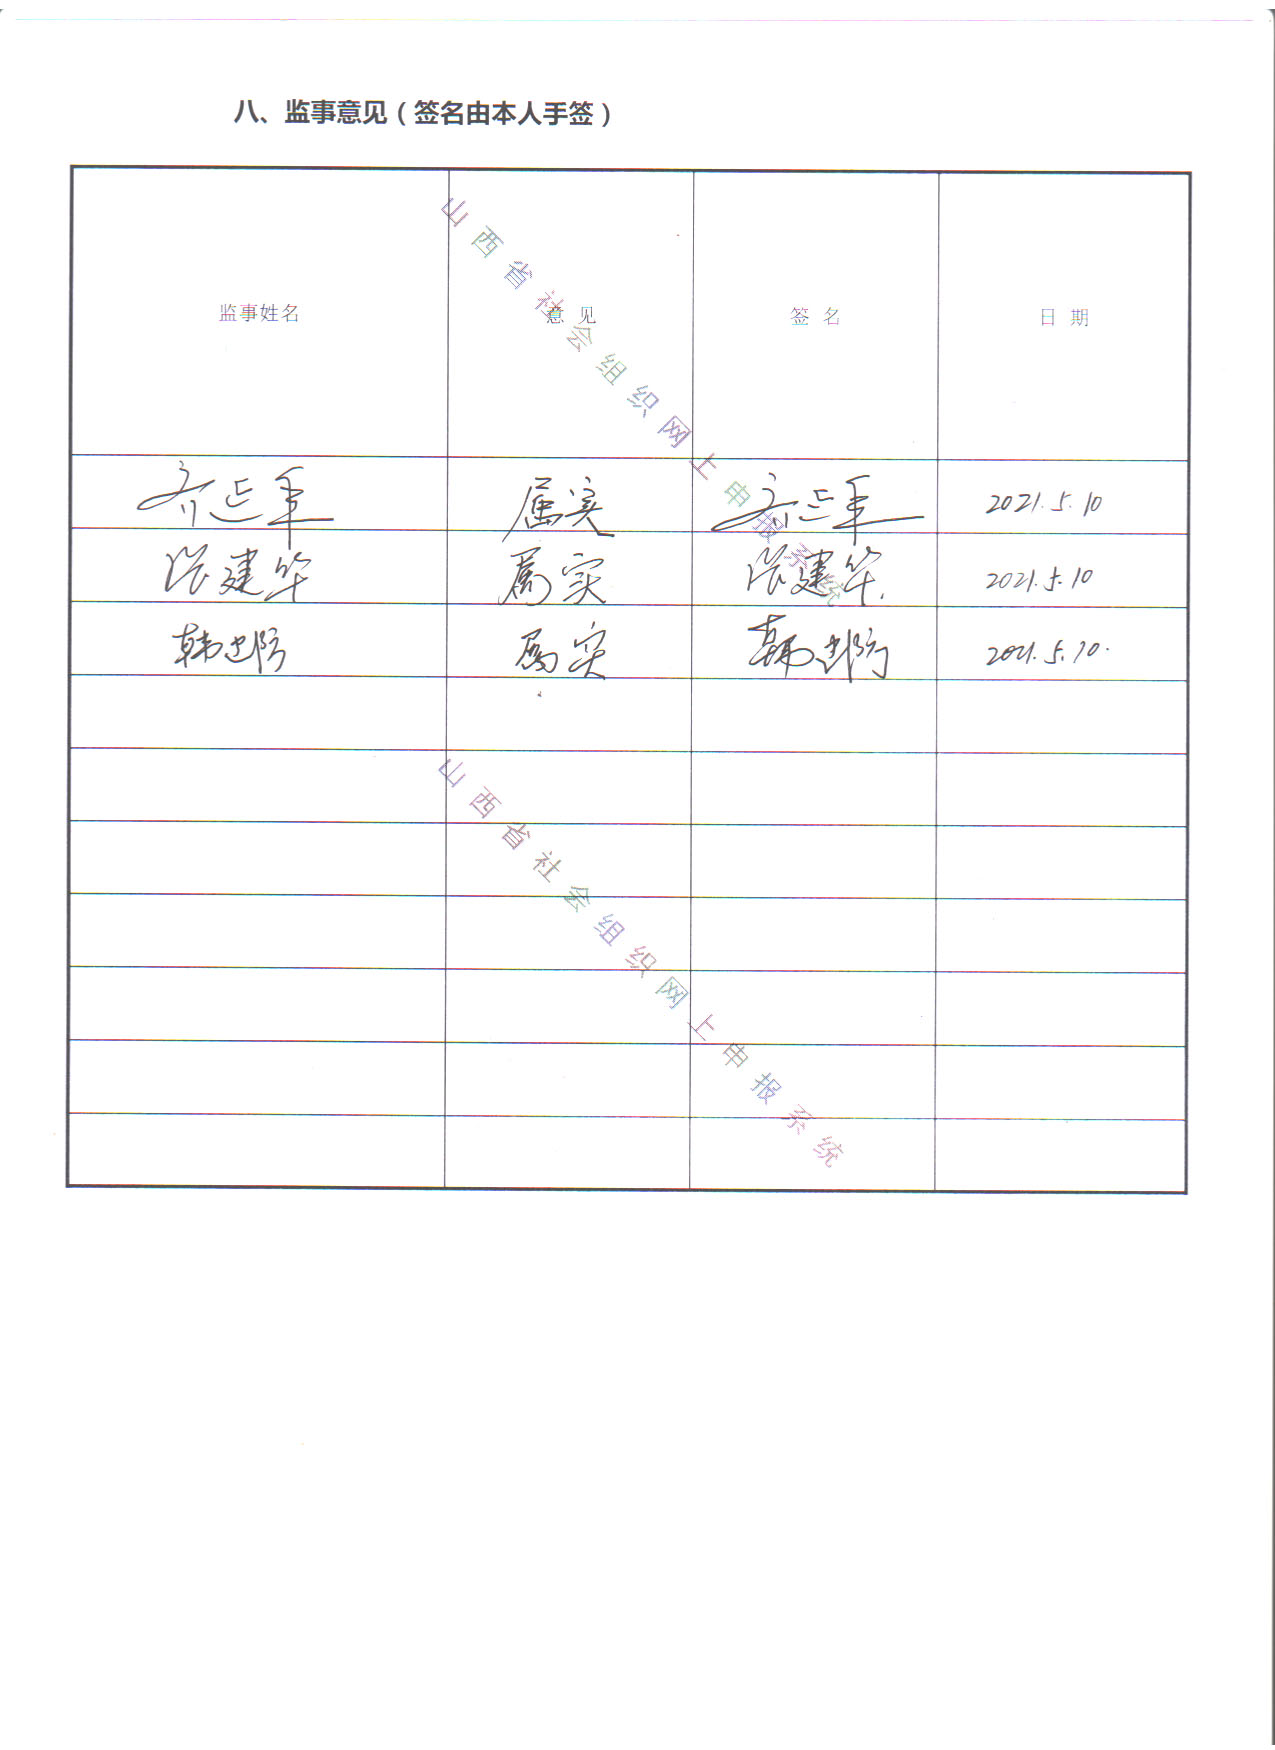 八、监事意见（签名由本人手签）
监事姓名 意 见 签 名 日 期
属实 2021.5.10
张建华 属实 张建华 2021.5.10
韩建防 属实 韩建防 2021.5.10.
山西省社会组织网上申报系统
山西省社会组织网上申报系统